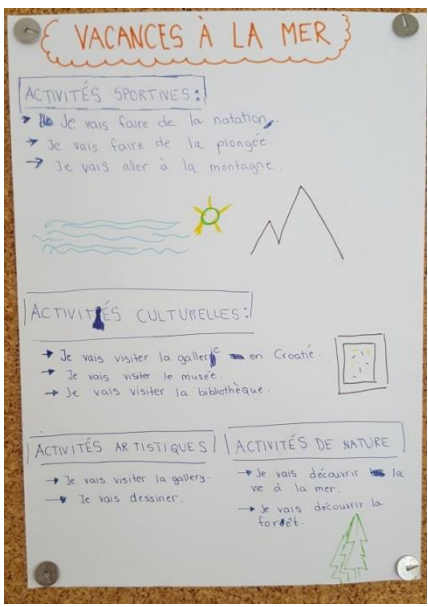 VACANCES À LA MER
ACTIVITÉS SPORTIVES:
→ Je vais faire de la natation.
→ Je vais faire de la plongée
→ Je vais aller à la montagne.
ACTIVITÉS CULTURELLES:
→ Je vais visiter la gallerie en Croatié.
→ Je vais visiter le musée.
→ Je vais visiter la bibliothèque.
ACTIVITÉS ARTISTIQUES
→ Je vais visiter la gallery.
→ Je vais dessiner.
ACTIVITÉS DE NATURE
→ Je vais découvrir la
vie à la mer.
→ Je vais découvrir la
forêt.